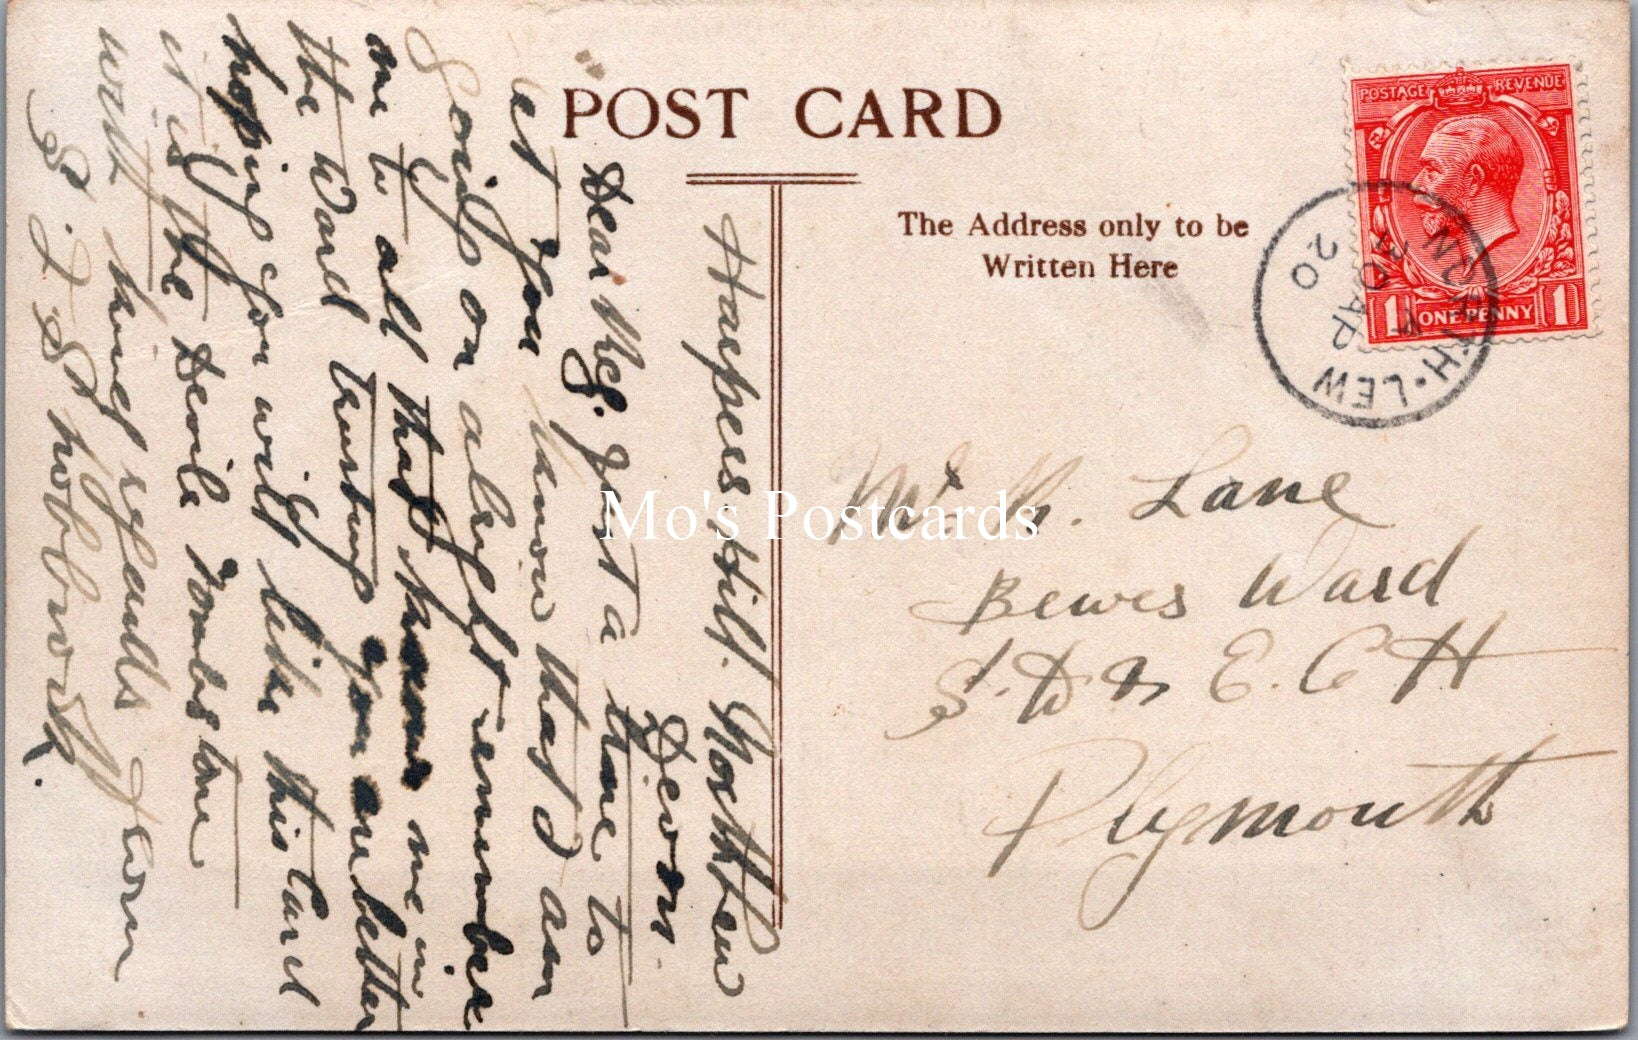 POST CARD
The Address only to be
Written Here
POSTAGE REVENUE
1 ONE PENNY 1
NORTH·LEW
AP
20
Lane
Bewes Ward
S. D & E. C H
Plymouth
Harpers Hill. Northlew
Devon.
Dear Meg. Just a line to
let you know that I am
going on alright remember
me to all that know me in
the Ward trusting you are better
hoping you will like this Card
it is the Devils Tombstone
with kind regards from
S. J. S.
Mo's Postcards